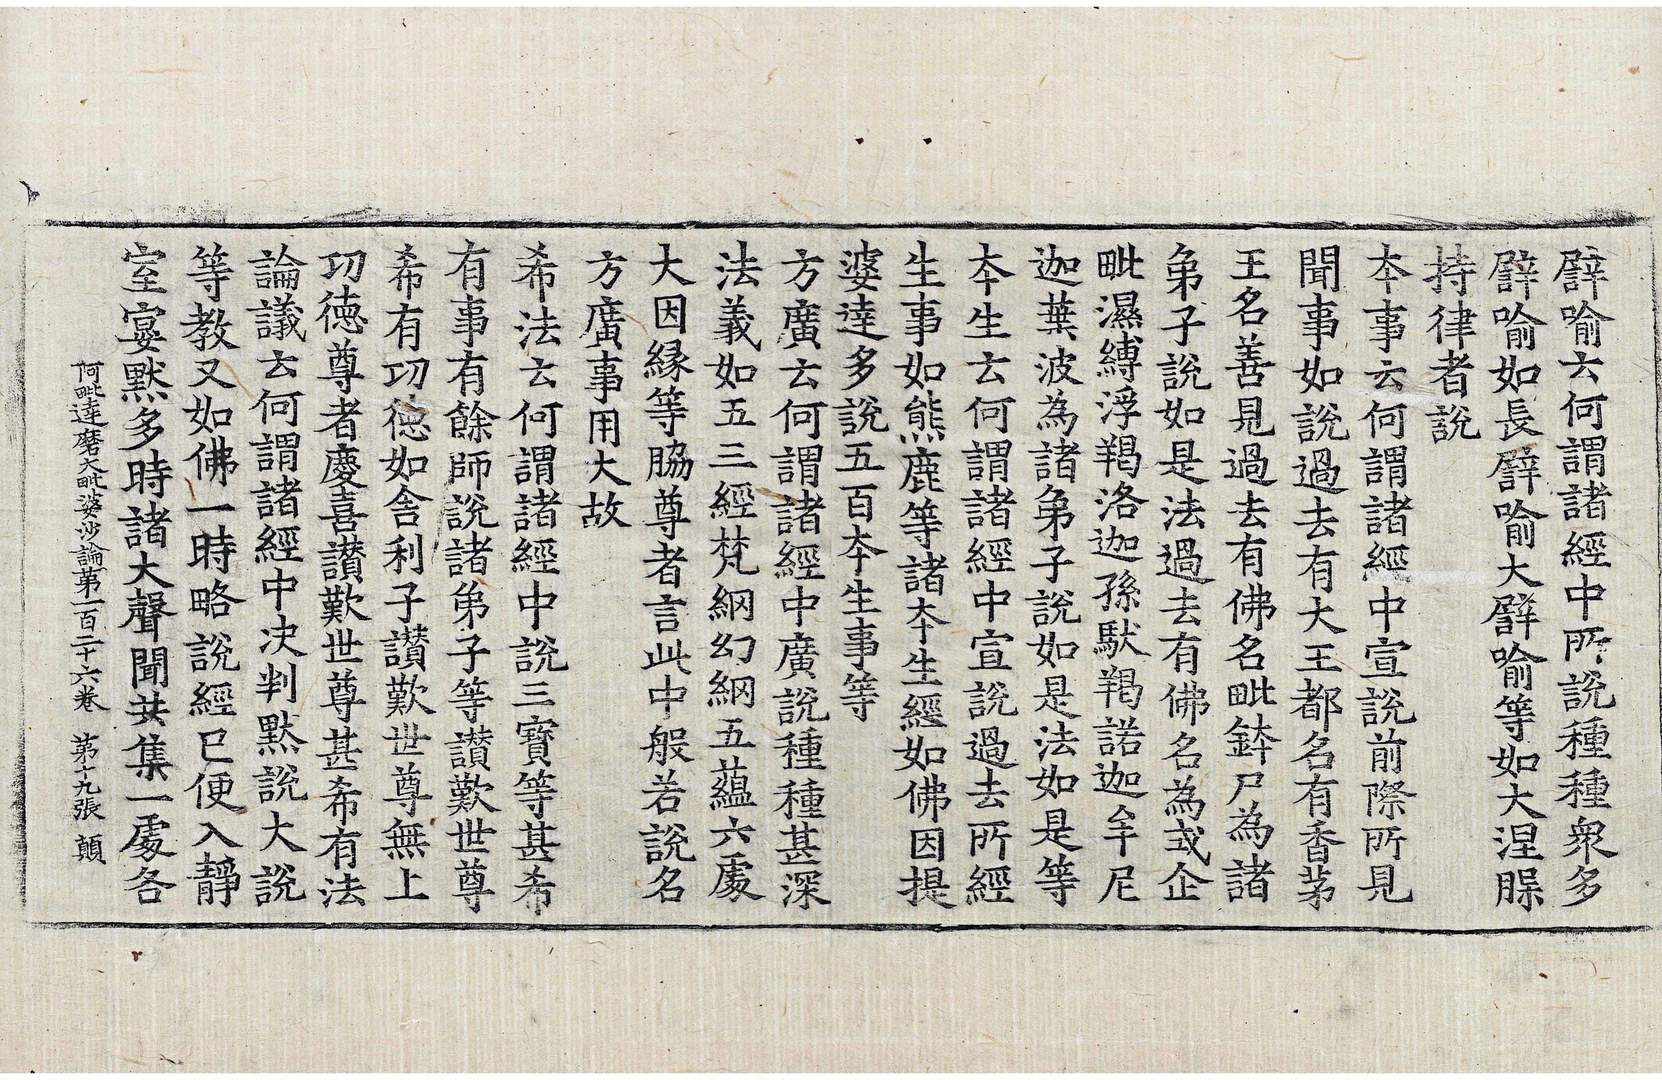 譬喻云何謂諸經中所說種種衆多
譬喻如長譬喻大譬喻等如大涅槃
持律者說
本事云何謂諸經中宣說前際所見
聞事如說過去有大王都名有香茅
王名善見過去有佛名毗鉢尸為諸
弟子說如是法過去有佛名為式企
毗濕縛浮羯洛迦孫馱羯諾迦牟尼
迦葉波為諸弟子說如是法如是等
本生云何謂諸經中宣說過去所經
生事如熊鹿等諸本生經如佛因提
婆達多說五百本生事等
方廣云何謂諸經中廣說種種甚深
法義如五三經梵網幻網五蘊六處
大因緣等脇尊者言此中般若說名
方廣事用大故
希法云何謂諸經中說三寶等甚希
有事有餘師說諸弟子等讚歎世尊
希有功德如舍利子讚歎世尊無上
功德尊者慶喜讚歎世尊甚希有法
論議云何謂諸經中決判默說大說
等教又如佛一時略說經已便入靜
室宴默多時諸大聲聞共集一處各
阿毗達磨大毗婆沙論第一百二十六卷 第十九張 顛